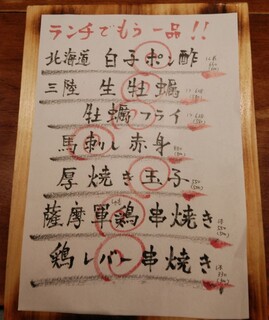 ランチでもう一品!!
北海道 白子ポン酢
三陸 生牡蠣
牡蠣フライ
馬刺し赤身
厚焼き玉子
薩摩軍鶏串焼き
鶏レバー串焼き